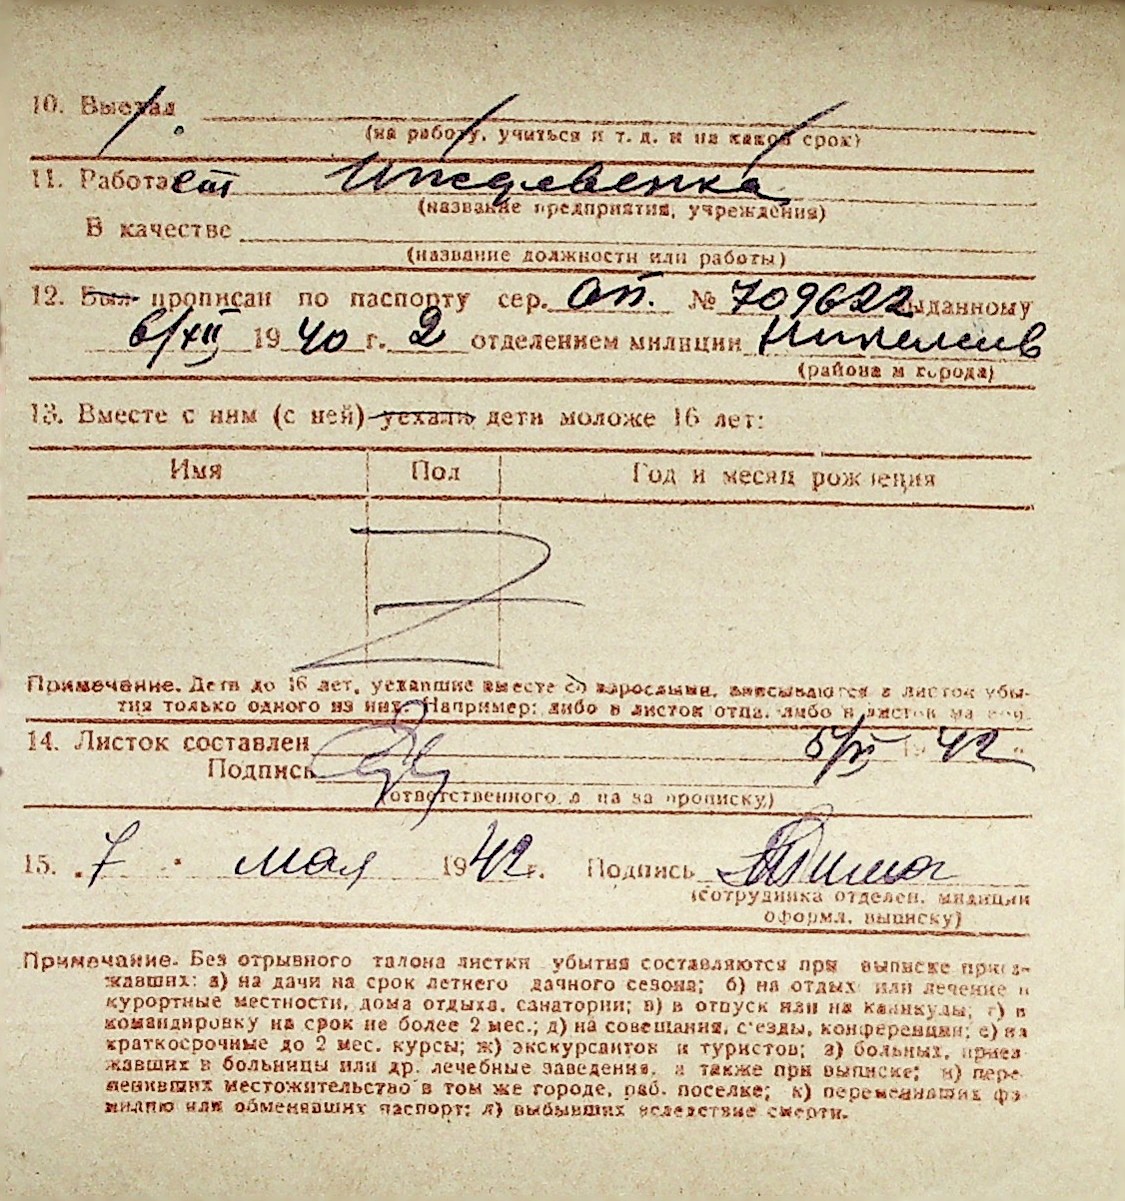 10. Выехал
(на работу, учиться и т. д. и на какой срок)
11. Работает Иждивенка
(название предприятия, учреждения)
В качестве
(название должности или работы)
12. Был прописан по паспорту сер. ОП. № 709622 выданному
6/XII 1940 г. 2 отделением милиции
(района и города)
13. Вместе с ним (с ней) уехали дети моложе 16 лет:
Имя Пол Год и месяц рождения
Примечание. Дети до 16 лет, уехавшие вместе со взрослыми, вписываются в листок убы-
тия только одного из них. Например: либо в листок отца, либо в листок матери.
14. Листок составлен 5/V 1942 г.
Подпись
(ответственного лица за прописку)
15. 7 мая 1942 г. Подпись
(сотрудника отделен. милиции
оформл. выписку)
Примечание. Без отрывного талона листки убытия составляются при выписке приез-
жавших: а) на дачи на срок летнего дачного сезона; б) на отдых или лечение в
курортные местности, дома отдыха, санатории; в) в отпуск или на каникулы; г) в
командировку на срок не более 2 мес.; д) на совещания, с'езды, конференции; е) на
краткосрочные до 2 мес. курсы; ж) экскурсантов и туристов; з) больных, приез-
жавших в больницы или др. лечебные заведения, а также при выписке; и) пере-
менивших местожительство в том же городе, раб. поселке; к) переменивших фа-
милию или обменявших паспорт; л) выбывших вследствие смерти.